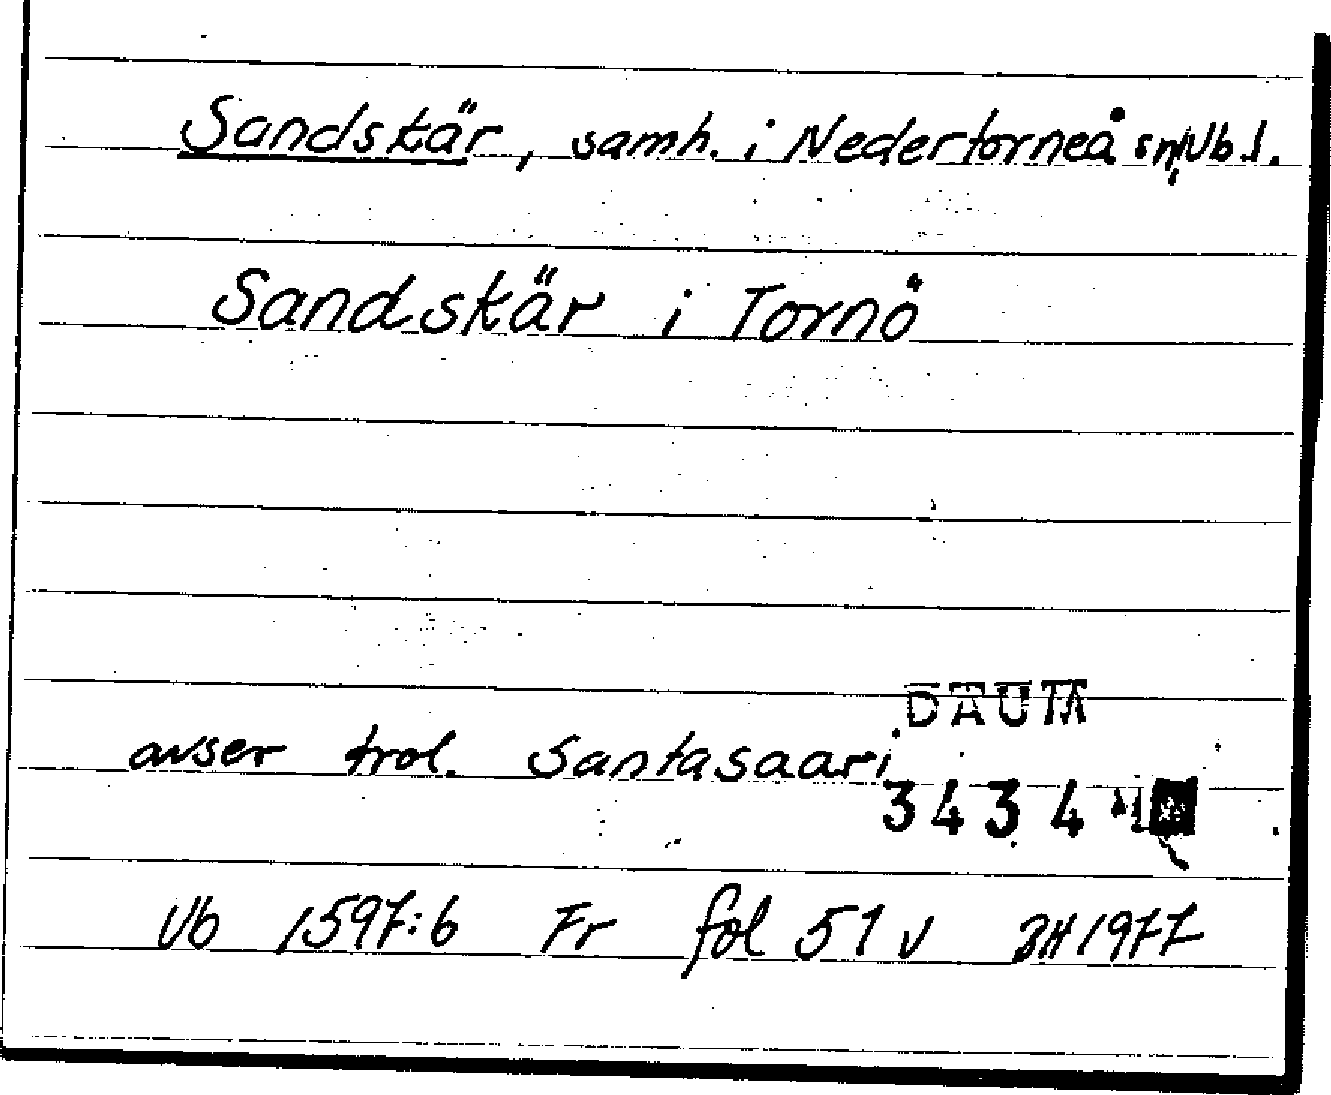 Sandskär, samh. i Nedertorneå sn, Vb.l.
Sandskär i Tornö
DAUM
avser trol. Santasaari
3434
Vb 1597:6 Fr fol 51 v BH 1977